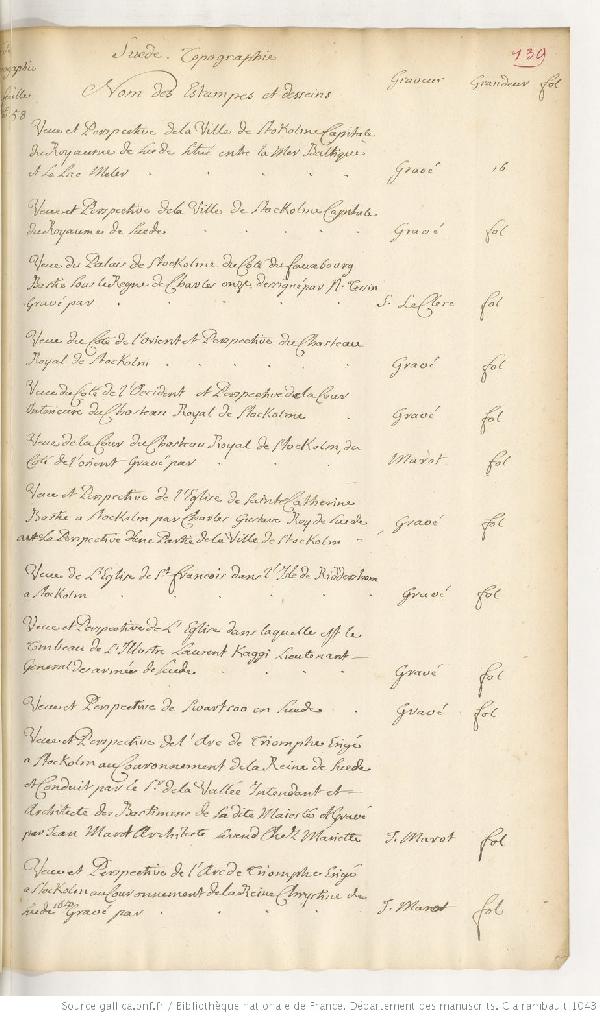 Suede. Topographie
139
Nom des Estampes et desseins Graveur Grandeur fol
58
Veue et Perspective de la Ville de Stokolme Capitale
du Royaume de Suede Situé entre la Mer Baltique
et Le Lac Meler Gravé 16
Veue et Perspective de la Ville de Stockolme Capitale
du Royaume de Suede Gravé fol
Veue du Palais de Stockolme du Coté du fauxbourg
Bastie Sous le Regne de Charles onze designé par N. Tessin
Gravé par S. LeClerc fol
Veue du Coté de l'orient et Perspective du Chasteau
Royal de Stockolm Gravé fol
Veue du Coté de l'Occident et Perspective de la Cour
Interieure du Chasteau Royal de Stockolme Gravé fol
Veue de la Cour du Chasteau Royal de Stockolm, du
Coté de l'orient Gravé par Marot fol
Veue et Perspective de l'Eglise de Sainte Catherine
Bastie a Stockolm par Charles Gustave Roy de Suede Gravé fol
avec La Perspective d'une Partie de la Ville de Stockolm
Veue de L'Eglise de St. francois dans l'Isle de Ridderholm
a Stockolm Gravé fol
Veue et Perspective de L'Eglise dans laquelle est le
Tombeau de L'Illustre Laurent Kaggi Lieutenant
General des armées de Suede Gravé fol
Veue et Perspective de Swartsoo en Suede Gravé fol
Veue et Perspective de l'Arc de Triomphe Erigé
a Stockolm au Couronnement de la Reine de Suede
et Conduit par le Sr. de la Vallée Intendant et
Architecte des Bastimens de Sa dite Majestés et Gravé
par Jean Marot Architecte Avend Chez Mariette J. Marot fol
Veue et Perspective de l'Arc de Triomphe Erigé
a Stockolm au Couronnement de la Reine Chrystine de
Suede 1650 Gravé par J. Marot fol
Source gallica.bnf.fr / Bibliothèque nationale de France. Département des manuscrits. Clairambault 1043